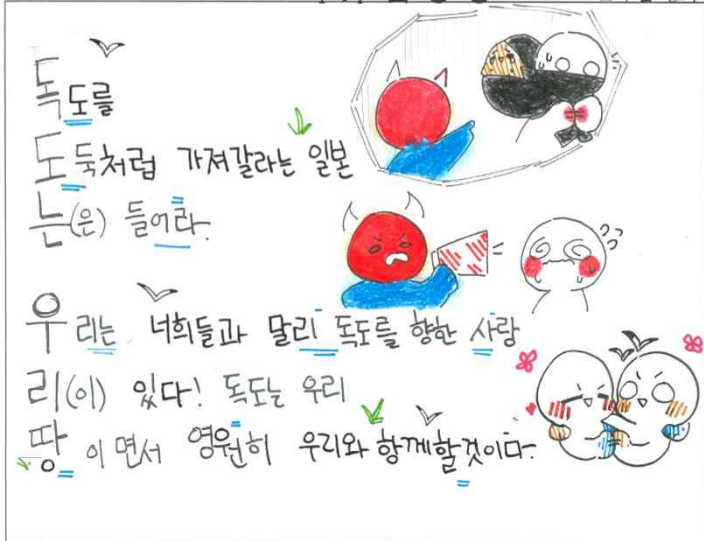 독도를
도둑처럼 가져갈라는 일본
는(은) 들어라.
우리는 너희들과 말리 독도를 향한 사랑
리(이) 있다! 독도는 우리
땅이면서 영원히 우리와 항께할것이다.